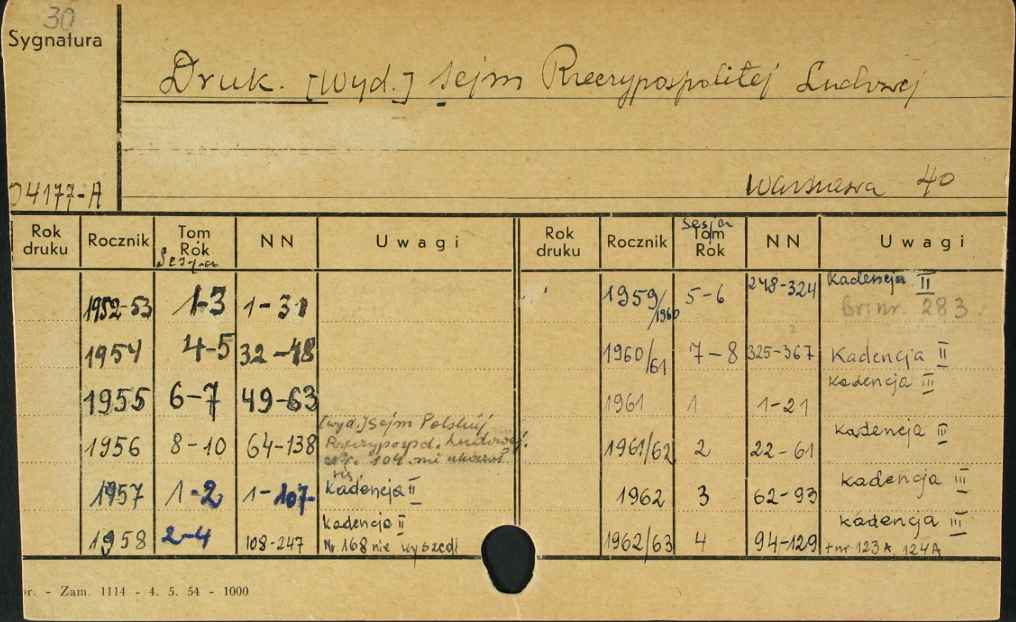 30
Sygnatura
Druk. [Wyd.] Sejm Rzeczypospolitej Ludowej
04177-A
Warszawa 40
Rok druku Rocznik Tom Rok Sesja NN Uwagi
1952-53 1-3 1-31
1954 4-5 32-48
1955 6-7 49-63
1956 8-10 64-138 [wyd.] Sejm Polskiej
Rzeczyposp. Ludowej.
104
1957 1-2 1-107 Kadencja II
1958 2-4 108-247 Kadencja II
Nr. 168 nie wyszedł
Rok druku Rocznik Sesja Tom Rok NN Uwagi
1959/1960 5-6 248-324 Kadencja II
Br. nr. 283.
1960/61 7-8 325-367 Kadencja II
1961 1 1-21 Kadencja III
1961/62 2 22-61 Kadencja III
1962 3 62-93 Kadencja III
1962/63 4 94-129 Kadencja III
+nr 123A, 124A
r. - Zam. 1114 - 4. 5. 54 - 1000